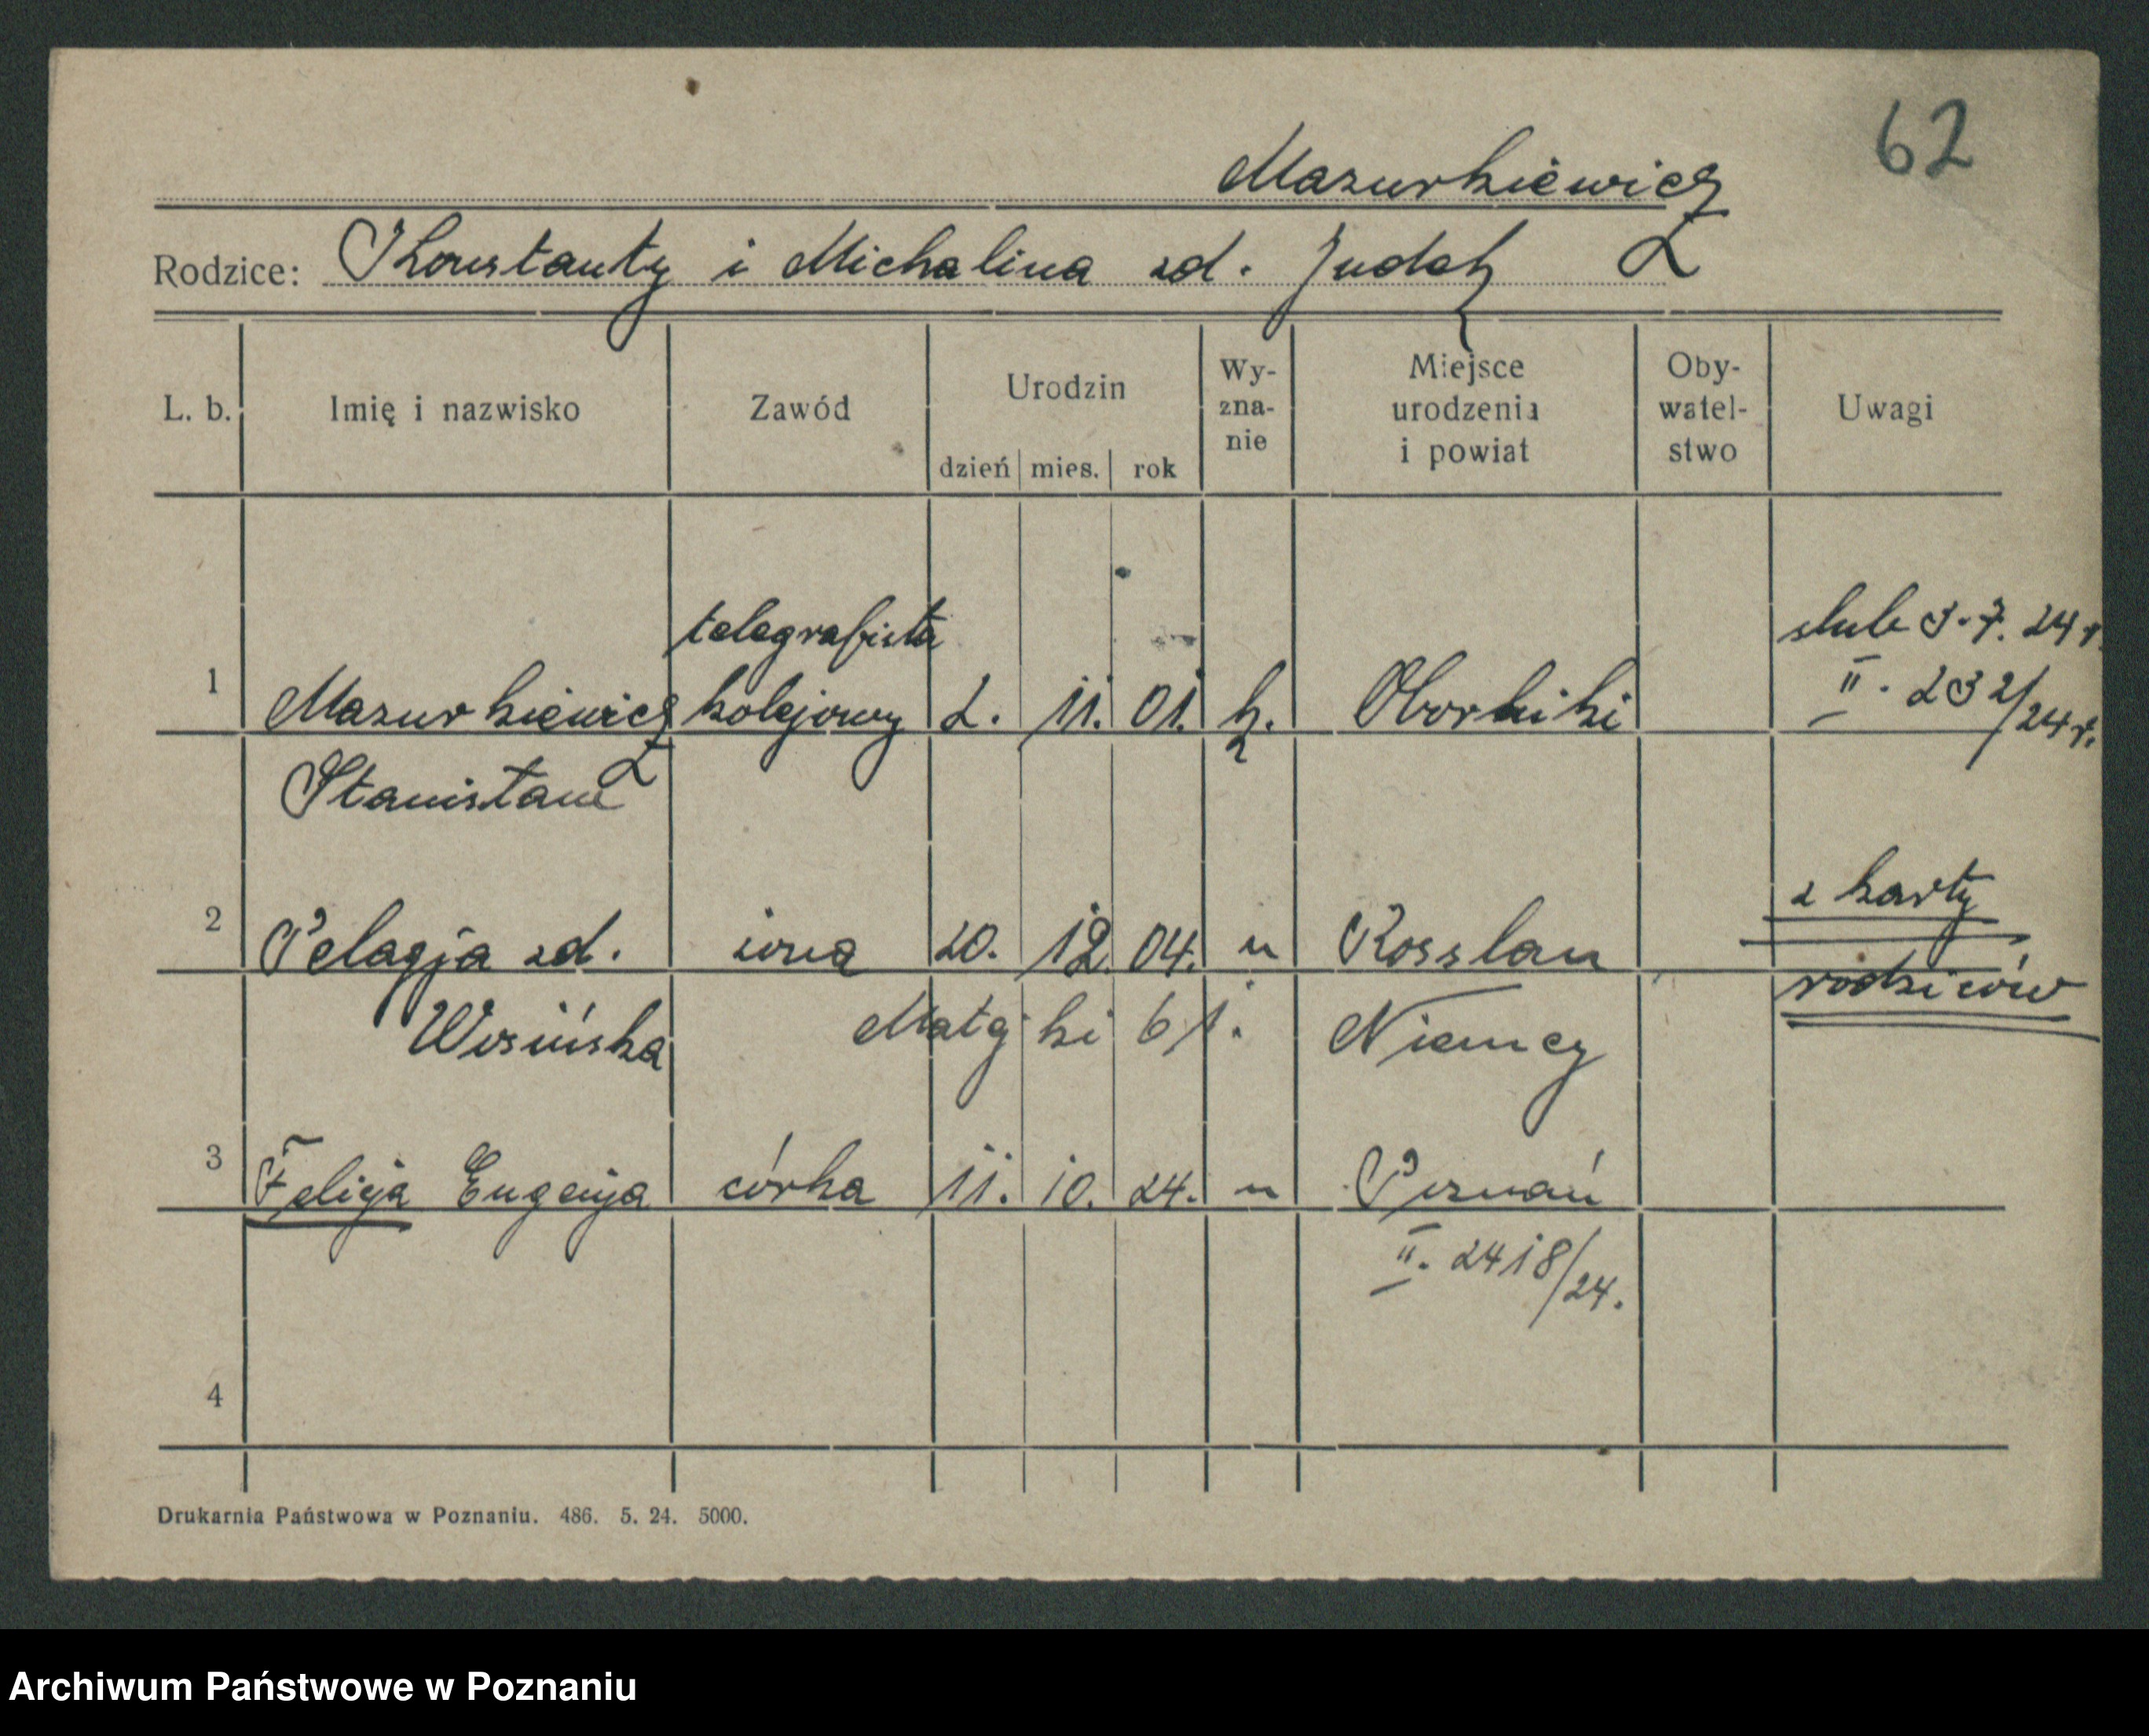 62
Mazurkiewicz
Rodzice: Konstanty i Michalina zd. Judek
L. b. Imię i nazwisko Zawód Urodzin dzień mies. rok Wy-zna-nie Miejsce urodzenia i powiat Oby-watel-stwo Uwagi
telegrafista ślub 3.7. 24 r.
1 Mazurkiewicz kolejowy 2. 11. 01. k. Oborniki II. 232/24 r.
Stanisław
z karty
2 Pelagja zd. żona 20. 12. 04. " Rosslau rodziców
Matejki 61. Niemcy
3 Felicja Eugenja córka 11. 10. 24. " Poznań
II. 2418/24.
4
Drukarnia Państwowa w Poznaniu. 486. 5. 24. 5000.
Archiwum Państwowe w Poznaniu